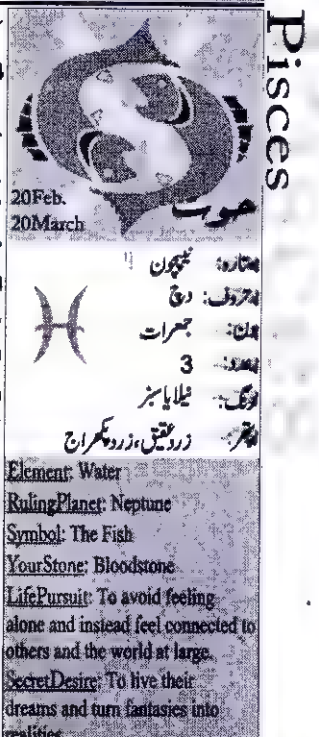 Pisces
20Feb.
20March
حوت
ستارہ: نیپچون
حروف: د چ
دن: جمعرات
عدد: 3
رنگ: نیلا یا سبز
پتھر: زرد عقیق، زرد پکھراج
Element: Water
RulingPlanet: Neptune
Symbol: The Fish
YourStone: Bloodstone
LifePursuit: To avoid feeling
alone and instead feel connected to
others and the world at large.
SecretDesire: To live their
dreams and turn fantasies into
realities